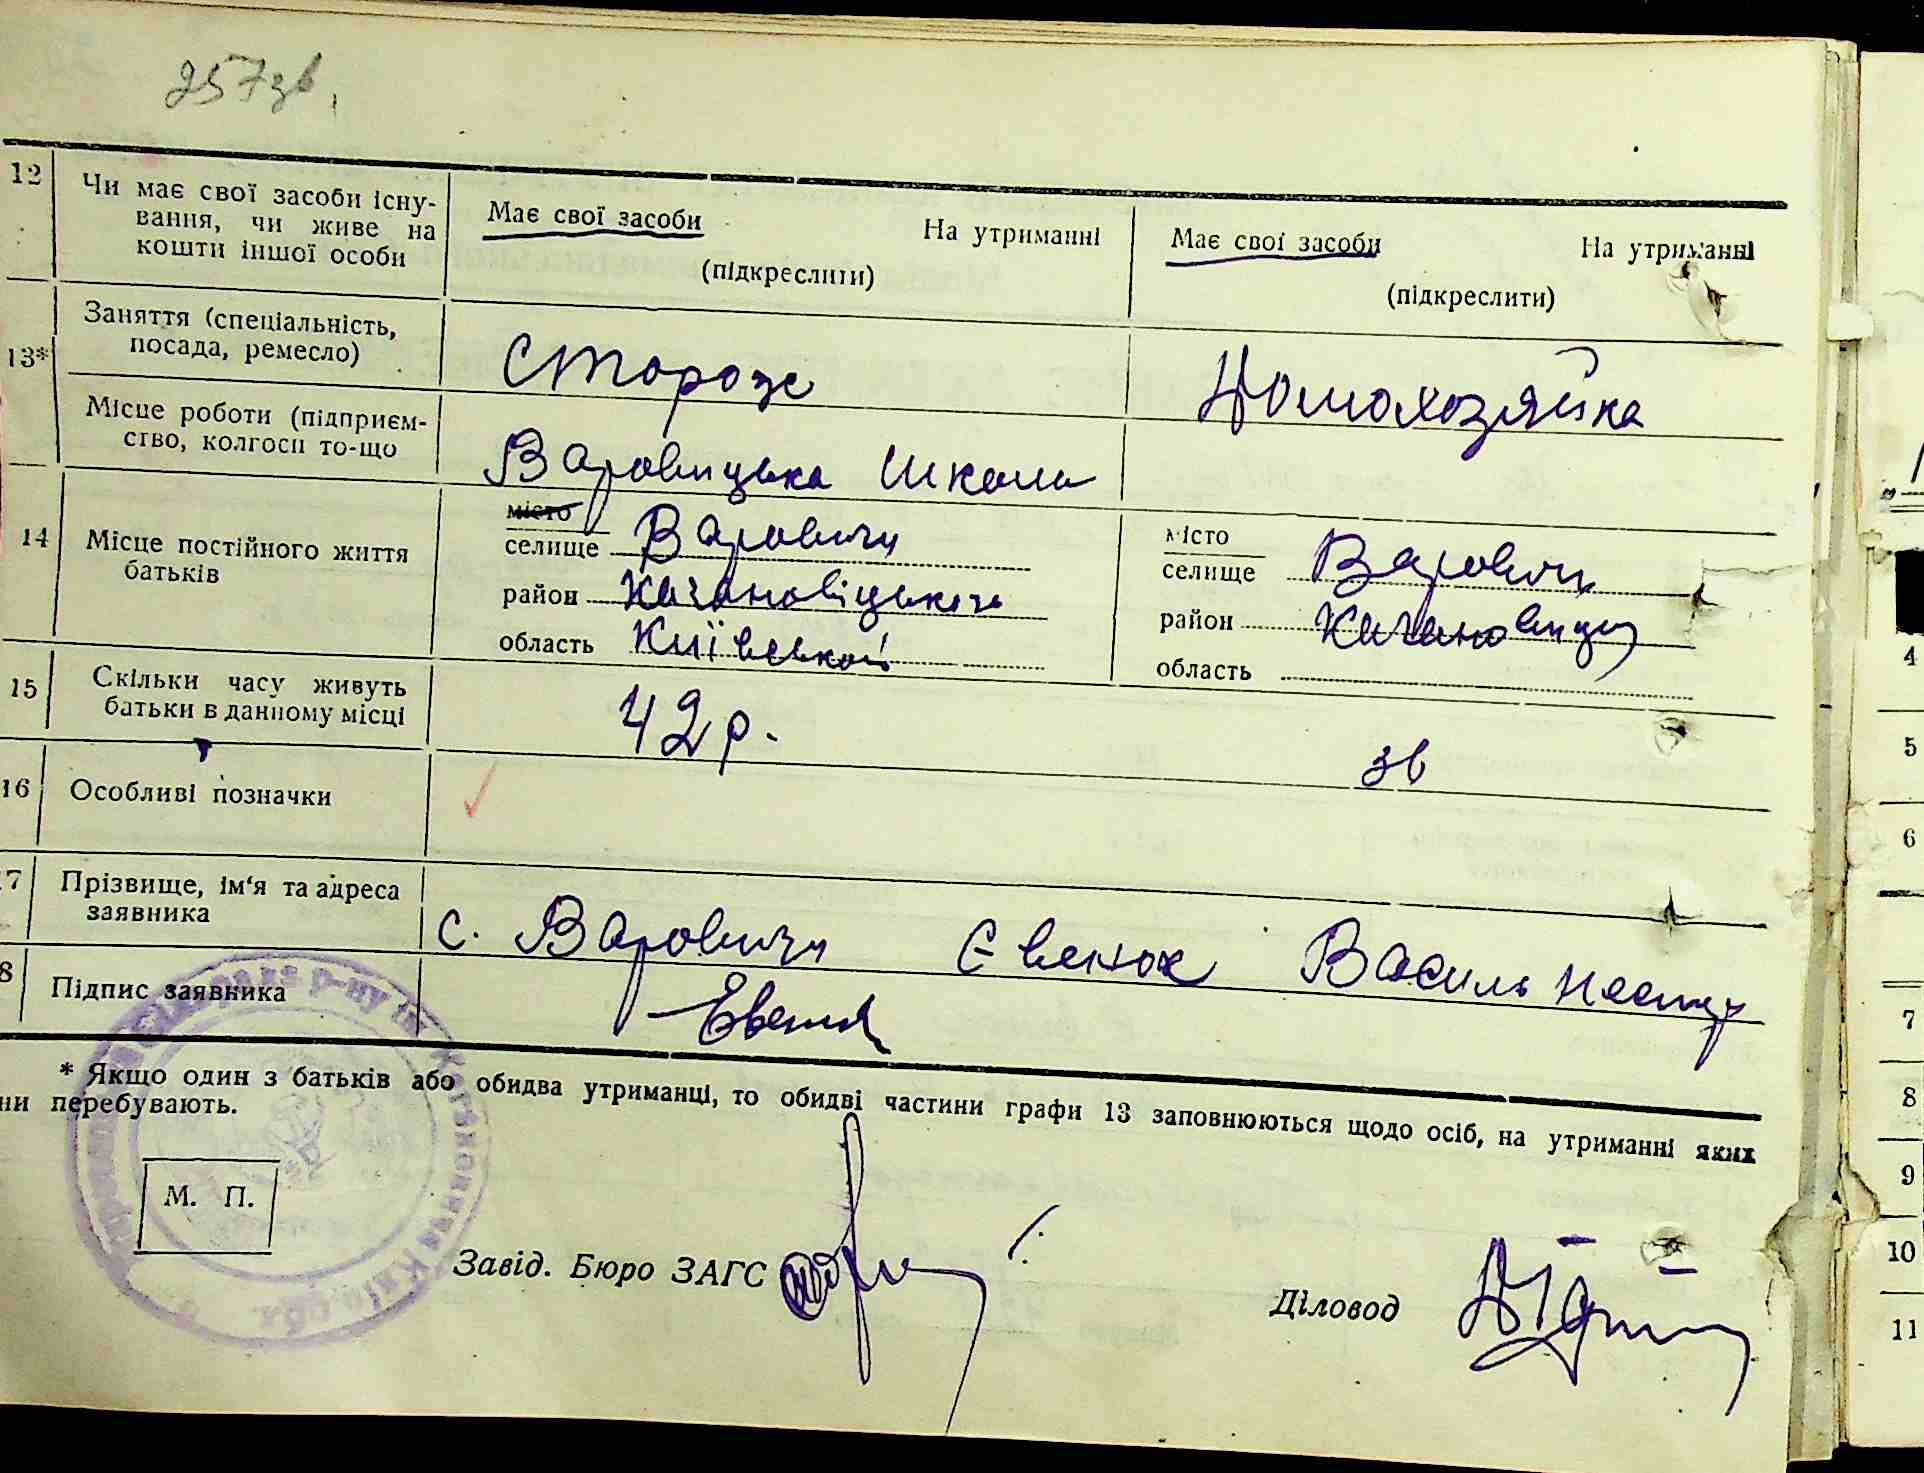 257зв.
12
Чи має свої засоби існу-
вання, чи живе на
кошти іншої особи
Має свої засоби На утриманні
(підкреслити)
Має свої засоби На утриманні
(підкреслити)
13*
Заняття (спеціальність,
посада, ремесло)
Сторож
Домохозяйка
Місце роботи (підприєм-
ство, колгосп то-що
Варовицька школа
14
Місце постійного життя
батьків
місто
селище Варовичи
район Кагановіцького
область Київської
місто
селище Варовичи
район Кагановицьк
область
15
Скільки часу живуть
батьки в данному місці
42 р.
зв
16
Особливі позначки
17
Прізвище, ім'я та адреса
заявника
с. Варовичи Євенок Василь
18
Підпис заявника
* Якщо один з батьків або обидва утриманці, то обидві частини графи 13 заповнюються щодо осіб, на утриманні яких
ни перебувають.
М. П.
Завід. Бюро ЗАГС
Діловод
4
5
6
7
8
9
10
11